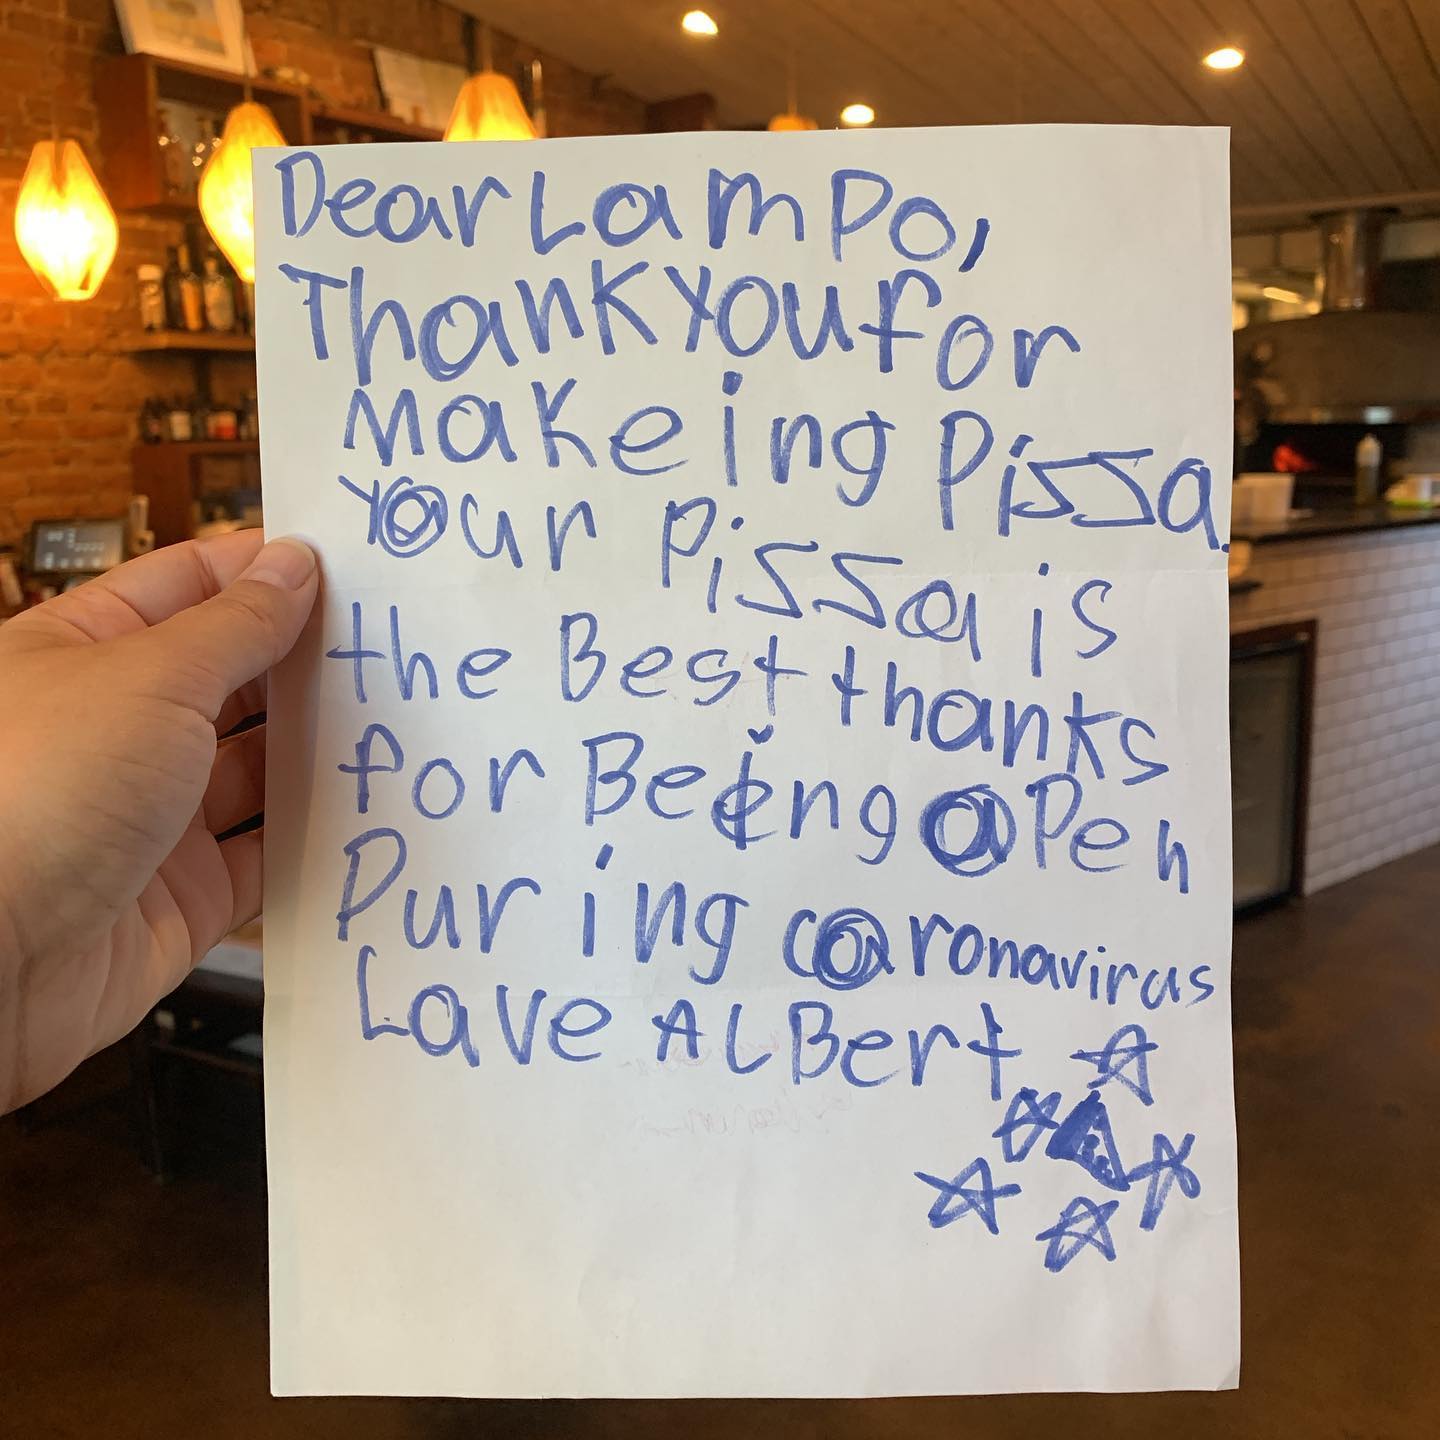 Dear Lampo,
Thank you for
makeing Pissa.
your Pissa is
the Best thanks
for Being open
During coronavirus
Love Albert